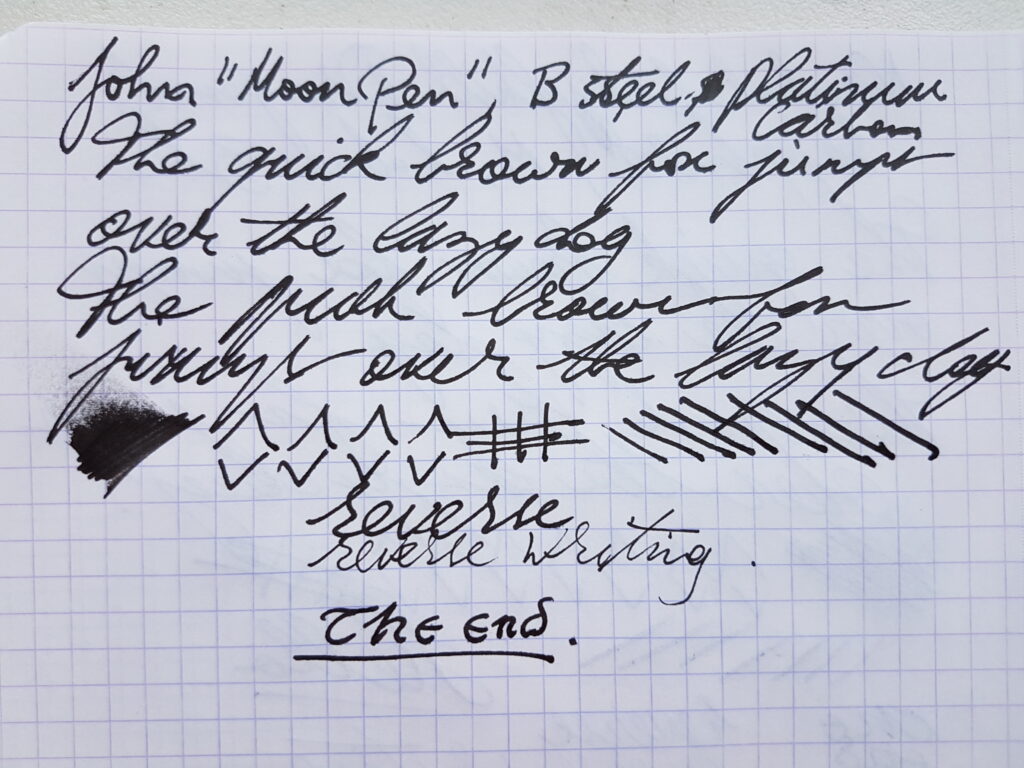 John "Moon Pen", B steel, Platinum
Carbon
The quick brown fox jumps
over the lazy dog
The quick brown fox
jumps over the lazy dog
reverse
reverse writing.
The end.